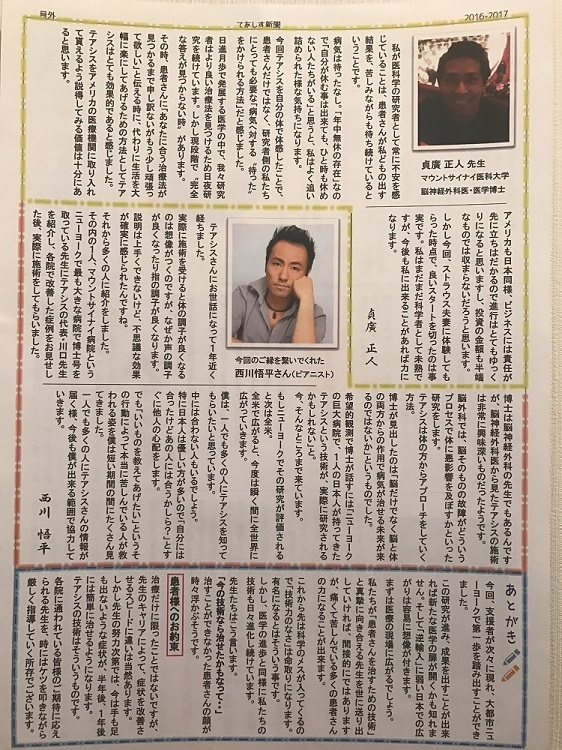 号外
てあしす新聞
2016-2017
貞廣 正人 先生
マウントサイナイ医科大学
脳神経外科医・医学博士
私が医科学の研究者として常に不安を感
じていることは、患者さんが私どもの出す
結果を、苦しみながらも待ち続けていると
いうことです。
病気は待ったなし。「年中無休の存在」なの
で「自分が休む事は出来ても、ひと時も休め
ない人たちがいること」思うと、私はよく追い
詰められた様な気持ちになります。
今回テアシスを自分の体で体感したことで、
患者さんだけではなく、研究者側の私たち
にとっても必要な“病気へ対する、“待った”
をかけられる方法”だと感じました。
日進月歩で発展する医学の中で、我々研究
者はより良い治療法を見つけるため日夜研
究を続けています。しかし現段階で“完全
な答えが見つからない時”があります。
その時、患者さんに「あなたに合う治療法が
見つかるまで申し訳ないがもう少し頑張っ
て欲しい」と伝える時に、代わりに生活を大
幅に楽にしてあげるための方法としてテア
シスはとても効果的であると感じました。
テアシスをアメリカの医療機関に取り入れ
て貰えるよう説得してみる価値は十分にあ
ると思います。
アメリカも日本同様、ビジネスには責任が
先に立ちはだかるので進行はとてもゆっく
りになると思いますし、投資の金額も半端
なものでは収まらないだろうと思います。
しかし今回、ストラウス夫妻に体験しても
らった時点で、良いスタートを切ったのは事
実です。私はまだまだ科学者として未熟で
すが、今後も私に出来ることがあれば力に
なります。
貞廣 正人
今回のご縁を繋いでくれた
西川悟平さん(ピアニスト)
テアシスさんにお世話になって1年近く
経ちました。
実際に施術を受けると体の調子が良くなる
のは想像がつくのですが、なぜか声の調子
が良くなったり指の調子が良くなります。
説明は上手くできないけど、不思議な効果
が確実に感じられたんですね。
それから多くの人に紹介をしました。
その内の1人、マウントサイナイ病院という
ニューヨークで最も大きな病院で博士号を
取っている先生にテアシスの代表・川口先生
を紹介し、各院で改善した症例をお見せし
た後、実際に施術をしてもらいました。
博士は脳神経外科の先生でもあるんです
が、脳神経外科医から見たテアシスの施術
は非常に興味深いものだったようです。
脳外科では、脳そのものの故障がどういう
プロセスで体に悪影響を及ぼすかといった
研究をします。
テアシスは体の方からアプローチをしていく
博士が見出したのは「脳だけでなく、脳と体
の両方からの作用で病気が治せる未来が来
るのではないか」というものでした。
希望的観測で博士が話すには「ニューヨーク
の巨大病院で、1人の日本人が持ってきた
テアシスという技術が、実際に研究される
かもしれない」と。
今、そんなところまで来ています。
もしニューヨークでその研究が評価される
と次は全米。
全米で広がると、今度は瞬く間に全世界に
広がっていきます。
僕は、一人でも多くの人にテアシスを知って
もらいたいと思っています。
中には合わない人もいるでしょう。
特に日本人は優しい方が多いので「自分には
合ったけどあの人には合うかしら?」とす
ぐに他人の心配をします。
でも「いいものを教えてあげたい」というそ
の行動によって本当に苦しんでいる人が救
われる姿を僕は短い期間の間にたくさん見
てきました。
一人でも多くの人にテアシスさんの情報が
届く様、今後も僕が出来る範囲で協力して
いきます。
西川 悟平
あとがき
今回、支援者が次々に現れ、大都市ニュ
ーヨークで第一歩を踏み出すことができ
ました。
この研究が進み、成果を出すことが出来
れば新たな医学の扉が開くかも知れま
せん。そして「逆輸入」に弱い日本での広
がりは容易に想像が付きます。
まずは医療の現場に広がるでしょう。
私たちが「患者さんを治すための技術」
と真摯に向き合える先生を世に送り出
していければ、間接的にではあります
が、痛くて苦しんでいる多くの患者さん
の力になることが出来ます。
これから先は科学のメスが入ってくるの
で「技術力のなさ」は命取りになります。
有名になるとはそういう事です。
しかし、医学の進歩と同様に私たちの
技術も日々進化し続けています。
先生たちはこう言います。
「今の技術なら治せたかもなって・・」
治すことができなかった患者さんの顔が
時々浮かぶそうです。
患者様へのお約束
治療だけに限ったことではないですが、
先生のキャリアによって、症状を改善さ
せるスピードに違いは当然あります。
しかし先生の努力次第では、今は手も足
も出ないような症状が、半年後、1年後
には簡単に治せるようになります。
テアシスの技術はそういうものです。
各院に通われている皆様のご期待に応え
られる先生を、時にはケツを叩きながら
厳しく指導していく所存でございます。